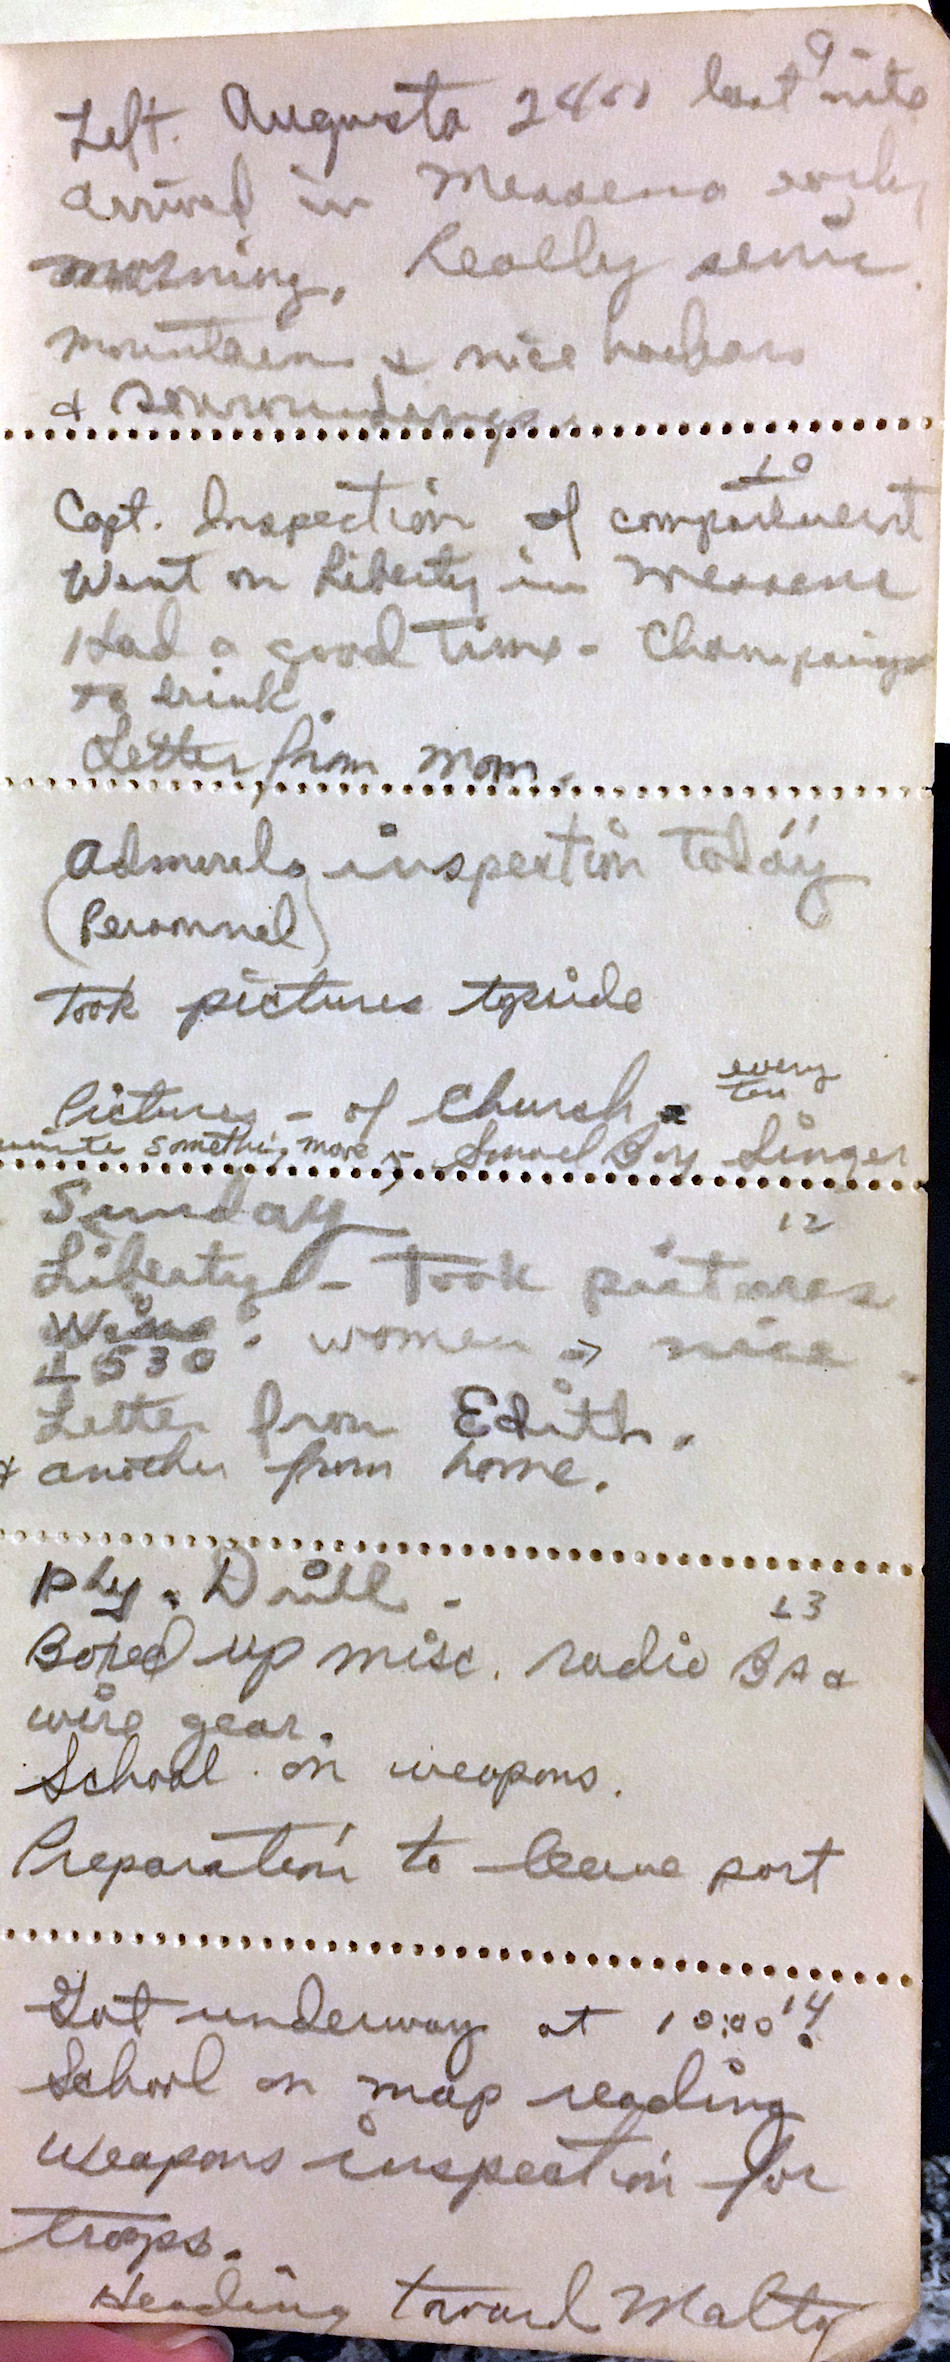 9
Left. Augusta 2400 last nite
arrived in Messena early
morning. Really senic.
mountains & nice harbars
& surroundings.
10
Capt. Inspection of compartment
Went on Liberty in Messene
Had a good time - Champaigne
to drink.
Letter from mom.
11
Admirals inspection today
(Personnel)
Took pictures topside
Pictures - of Church. every
ten
minute something more - Small Boy Singer
Sunday
12
Liberty - Took pictures
Wine : women -> nice.
1530
Letter from Edith.
& another from home.
Phy. Drill -
13
Boxed up misc. radio BA &
wire gear.
School on weapons.
Preparation to leave port
14
Got underway at 10:00.
School on map reading
Weapons inspection for
troops.
Heading toward Malta